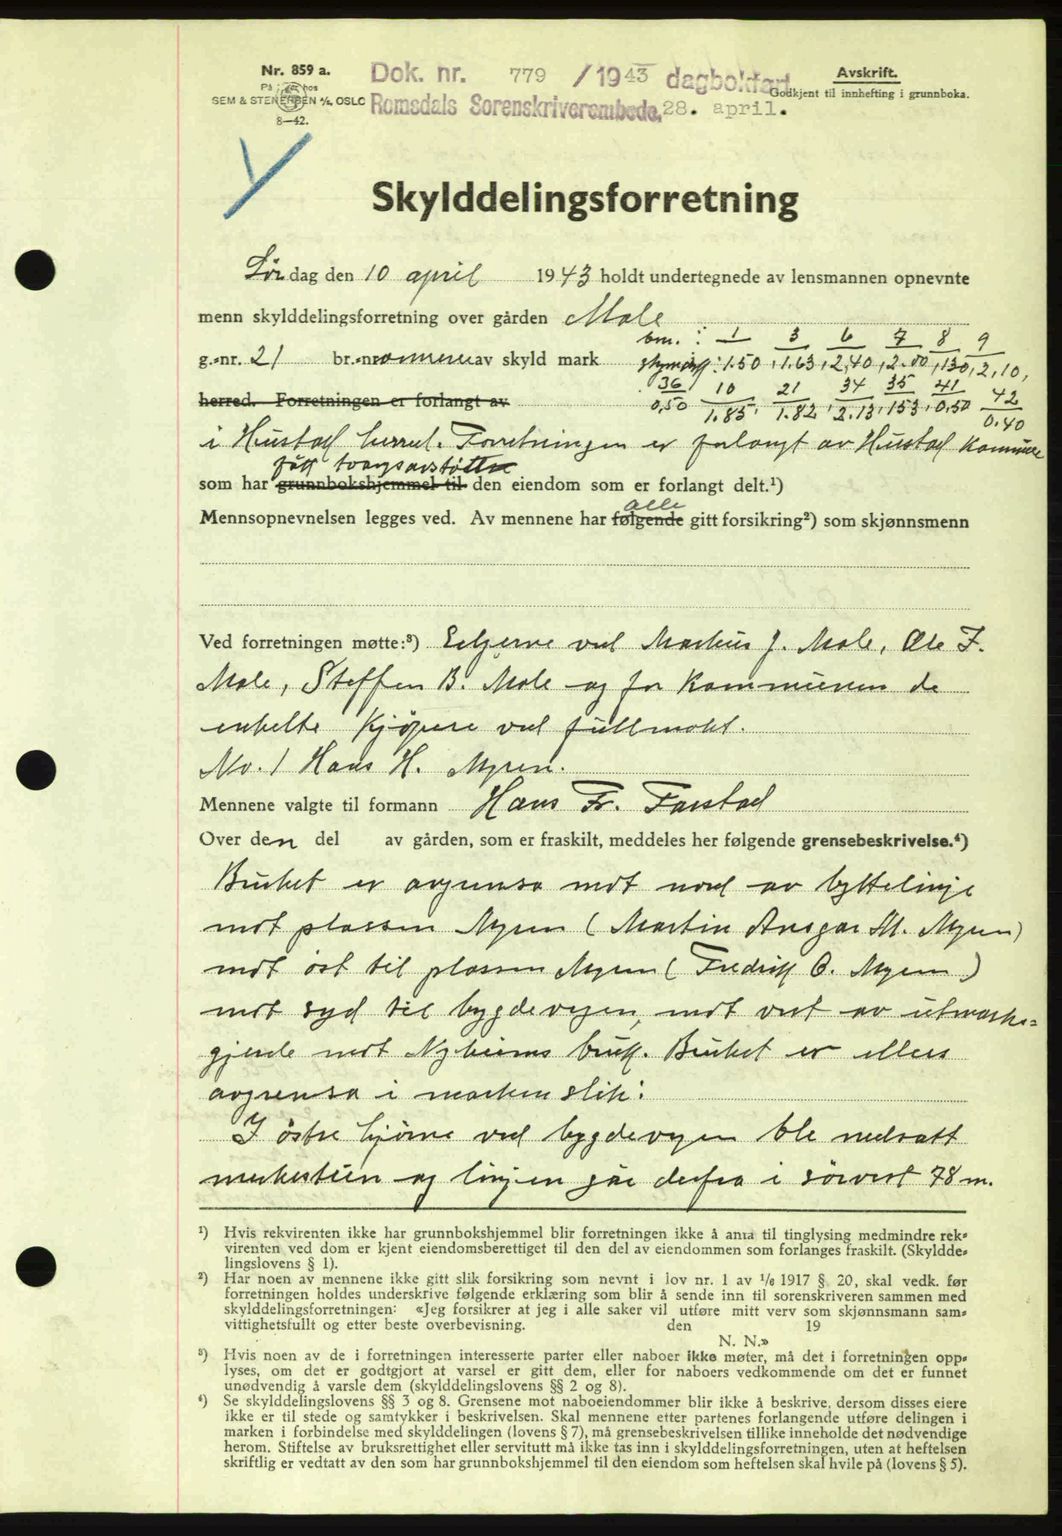 Nr. 859 a.
På lager hos
SEM & STENERSEN A/s, OSLO
8—42.
Dok. nr. 779 /1943 dagbokført
Romsdals Sorenskriverembede, 28. april.
Avskrift.
Godkjent til innhefting i grunnboka.
Skylddelingsforretning
Lørdag den 10 april 1943 holdt undertegnede av lensmannen opnevnte
menn skylddelingsforretning over gården Male
bnr. : 1 3 6 7 8 9
g.-nr. 21 br.-nr. av skyld mark 1.50, 1.63, 2.40, 2.00, 1.30, 2.10,
36 10 21 34 35 41 42
herred. Forretningen er forlangt av 0,50 1.85, 1.82, 2.13, 1.53, 0.50 0.40
i Hustad herred. Forretningen er forlangt av Hustad Kommune
fått tvangsavståtte
som har grunnbokshjemmel til den eiendom som er forlangt delt.¹)
alle
Mennsopnevnelsen legges ved. Av mennene har følgende gitt forsikring²) som skjønnsmenn
Ved forretningen møtte:³) Eigerne ved Markus J. Male, Ole F.
Male, Steffen B. Male og for Kommunen de
enkelte kjøpere ved fullmakt.
No. 1 Hans H. Myren.
Mennene valgte til formann Hans Fr. Farstad
Over den del av gården, som er fraskilt, meddeles her følgende grensebeskrivelse.⁴)
Bruket er avgrensa mot nord av byttelinje
mot plassen Myren (Martin Ansgar M. Myren)
mot öst til plassen Myren (Fredrik O. Myren)
mot syd til bygdevegen, mot vest av utmarks=
gjerde mot Nyheims bruk. Bruket er ellers
avgrensa i marken slik:
I östre hjörne ved bygdevegen ble nedsatt
merkestein og linjen går derfra i sörvest 78 m.
¹) Hvis rekvirenten ikke har grunnbokshjemmel blir forretningen ikke å anta til tinglysing medmindre rek-
virenten ved dom er kjent eiendomsberettiget til den del av eiendommen som forlanges fraskilt. (Skyldde-
lingslovens § 1).
²) Har noen av mennene ikke gitt slik forsikring som nevnt i lov nr. 1 av 1/6 1917 § 20, skal vedk. før
forretningen holdes underskrive følgende erklæring som blir å sende inn til sorenskriveren sammen med
skylddelingsforretningen: «Jeg forsikrer at jeg i alle saker vil utføre mitt verv som skjønnsmann sam-
vittighetsfullt og etter beste overbevisning. den 19
N. N.»
³) Hvis noen av de i forretningen interesserte parter eller naboer ikke møter, må det i forretningen opp-
lyses, om det er godtgjort at varsel er gitt dem, eller for naboers vedkommende om det er funnet
unødvendig å varsle dem (skylddelingslovens §§ 2 og 8).
⁴) Se skylddelingslovens §§ 3 og 8. Grensene mot naboeiendommer blir ikke å beskrive, dersom disses eiere
ikke er til stede og samtykker i beskrivelsen. Skal mennene etter partenes forlangende utføre delingen i
marken i forbindelse med skylddelingen (lovens § 7), må grensebeskrivelsen tillike inneholde det nødvendige
herom. Stiftelse av bruksrettighet eller servitutt må ikke tas inn i skylddelingsforretningen, uten at heftelsen
skriftlig er vedtatt av den som har grunnbokshjemmel til den eiendom som heftelsen skal hvile på (lovens § 5).